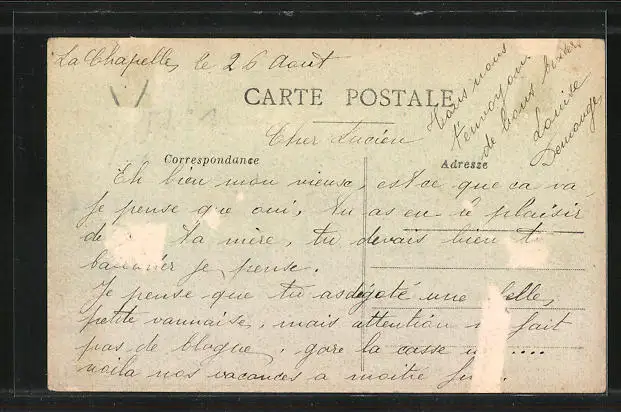 La Chapelle, le 26 Aout
CARTE POSTALE
Tous nous
t'envoyons
de bons baisers
Louise
Demouge
Cher Lucien
Correspondance
Adresse
Eh bien mon vieux, est ce que ca va,
je pense que oui, tu as eu le plaisir
de ta mère, tu devais bien t
je pense.
Je pense que tu as dégoté une belle
petite vannaise, mais attention fait
pas de blague, gare la casse ....
voila nos vacances a moitié